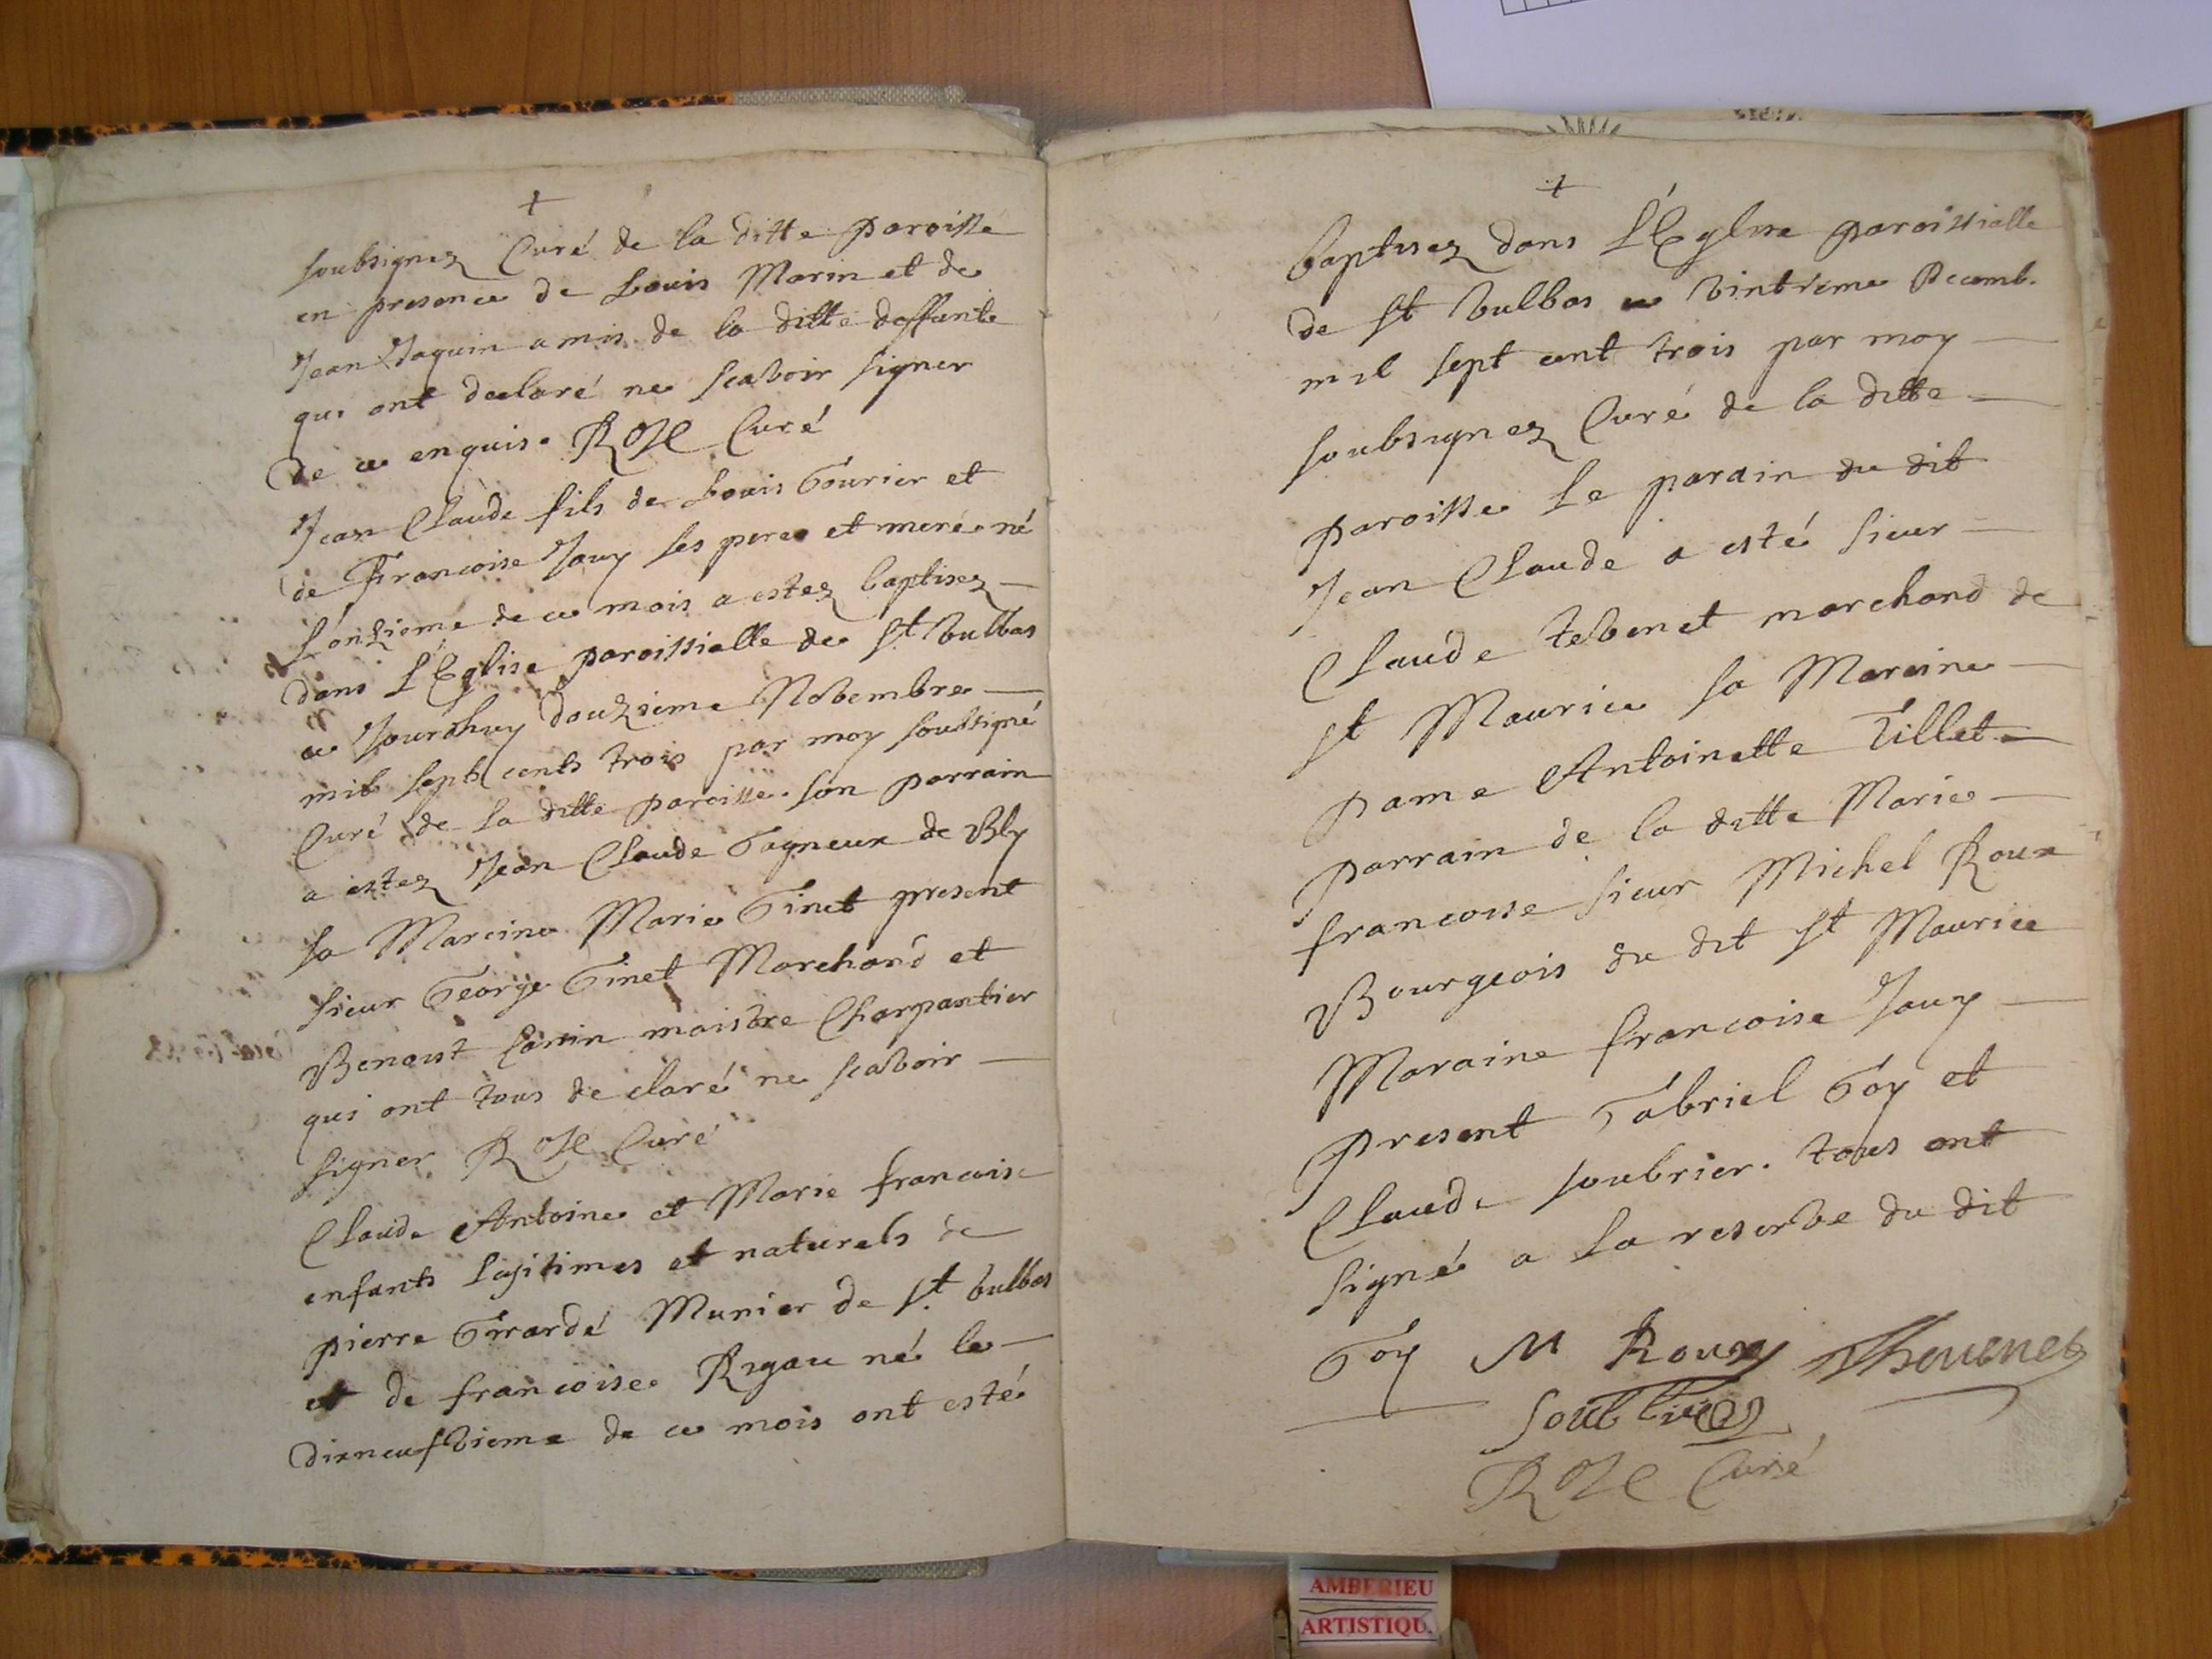 +
soubsignez Curé de la ditte paroisse
en presence de Louis Marin et de
Jean Jaquin amis de la ditte deffunte
qui ont declaré ne scavoir signer
de ce enquis. Roze Curé
Jean Claude fils de Louis Gourier et
de Francoise Jouy ses pere et mere né
L'onzieme de ce mois a estez baptisez
dans L'Eglise paroissialle de St Vulbas
ce Jourdhuy douzieme Novembre
mil sept cents trois par moy soussigné
Curé de la ditte paroisse. son parrain
a estez Jean Claude Gagneux de Bly
sa Mareine Marie Ginet present
sieur George Ginet Marchand et
Benoist maistre Charpantier
qui ont tous declaré ne scavoir
signer Roze Curé
Claude Antoine et Marie francoise
enfants Lajitimes et naturels de
pierre Girardé Munier de St Vulbas
et de francoise Rigau né le
dixneufvieme de ce mois ont esté
+
baptisez dans L'Eglise paroissialle
de St Vulbas ce vintieme Decemb.
mil sept cent trois par moy
soubsignez Curé de la ditte
paroisse Le parain du dit
Jean Claude a esté sieur
Claude tevenet marchand de
St Maurice sa Maraine
Dame Antoinette Tillet
parrain de la ditte Marie
francoise sieur Michel Roux
Bourgeois du dit St Maurice
Maraine francoise Jouy
present Gabriel Goy et
Claude soubrier. tous ont
signé a La reserve du dit
Goy M Roux Thevenet
Roze Curé
AMBERIEU
ARTISTIQU